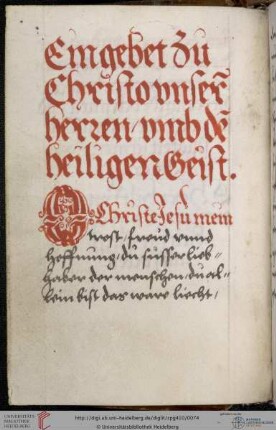 Ein gebet zu
Christo vnserñ
herren vmb dē
heiligen Geist.
O Christe Jesu mein
trost freud vnnd
hoffnung, du süsser lieb-
haber der menschen du al-
lein bist das ware liecht,
UNIVERSITÄTS-
BIBLIOTHEK
HEIDELBERG
http://digi.ub.uni-heidelberg.de/diglit/cpg450/0074
© Universitätsbibliothek Heidelberg